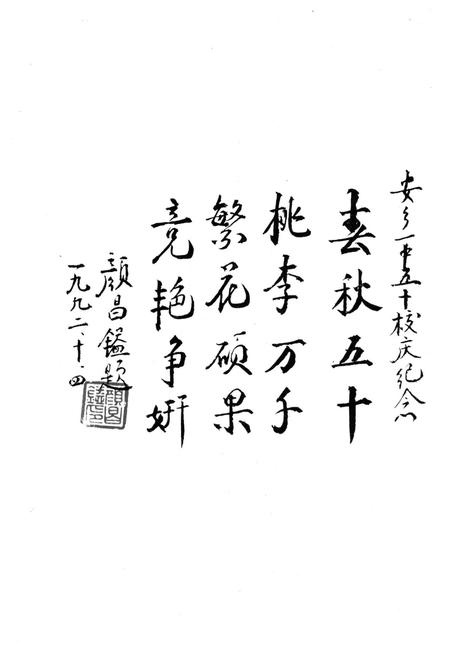 安乡一中五十校庆纪念
春秋五十
桃李万千
繁花硕果
竞艳争妍
颜昌鑑题
一九九二、十、四